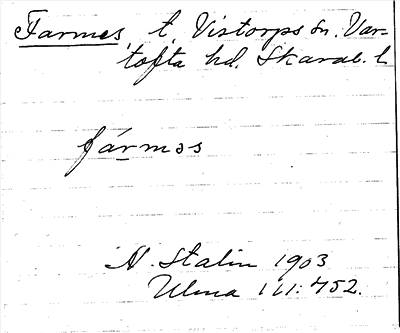 Farmes, t, Vistorps sn. Var-
tofta hd. Skarab. l
fárməs
N. Stalin 1903
Ulma 111:452.